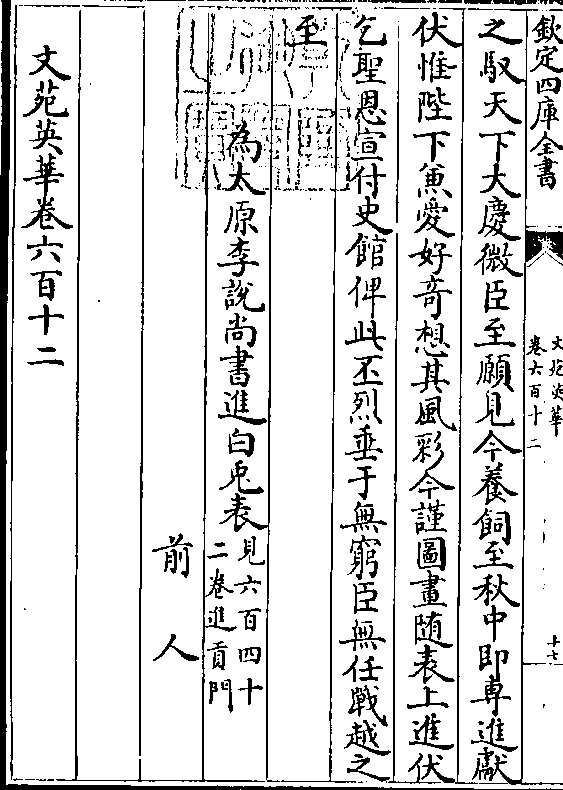 欽定四庫全書
文苑英華
卷六百十二
十七
之馭天下大慶微臣至願見今養飼至秋中即專進獻
伏惟陛下兼愛好奇想其風彩今謹圖畫随表上進伏
乞聖恩宣付史館俾此丕烈垂于無窮臣無任戰越之
至
為太原李說尚書進白兎表
見六百四十
二卷進貢門
前人
文苑英華卷六百十二